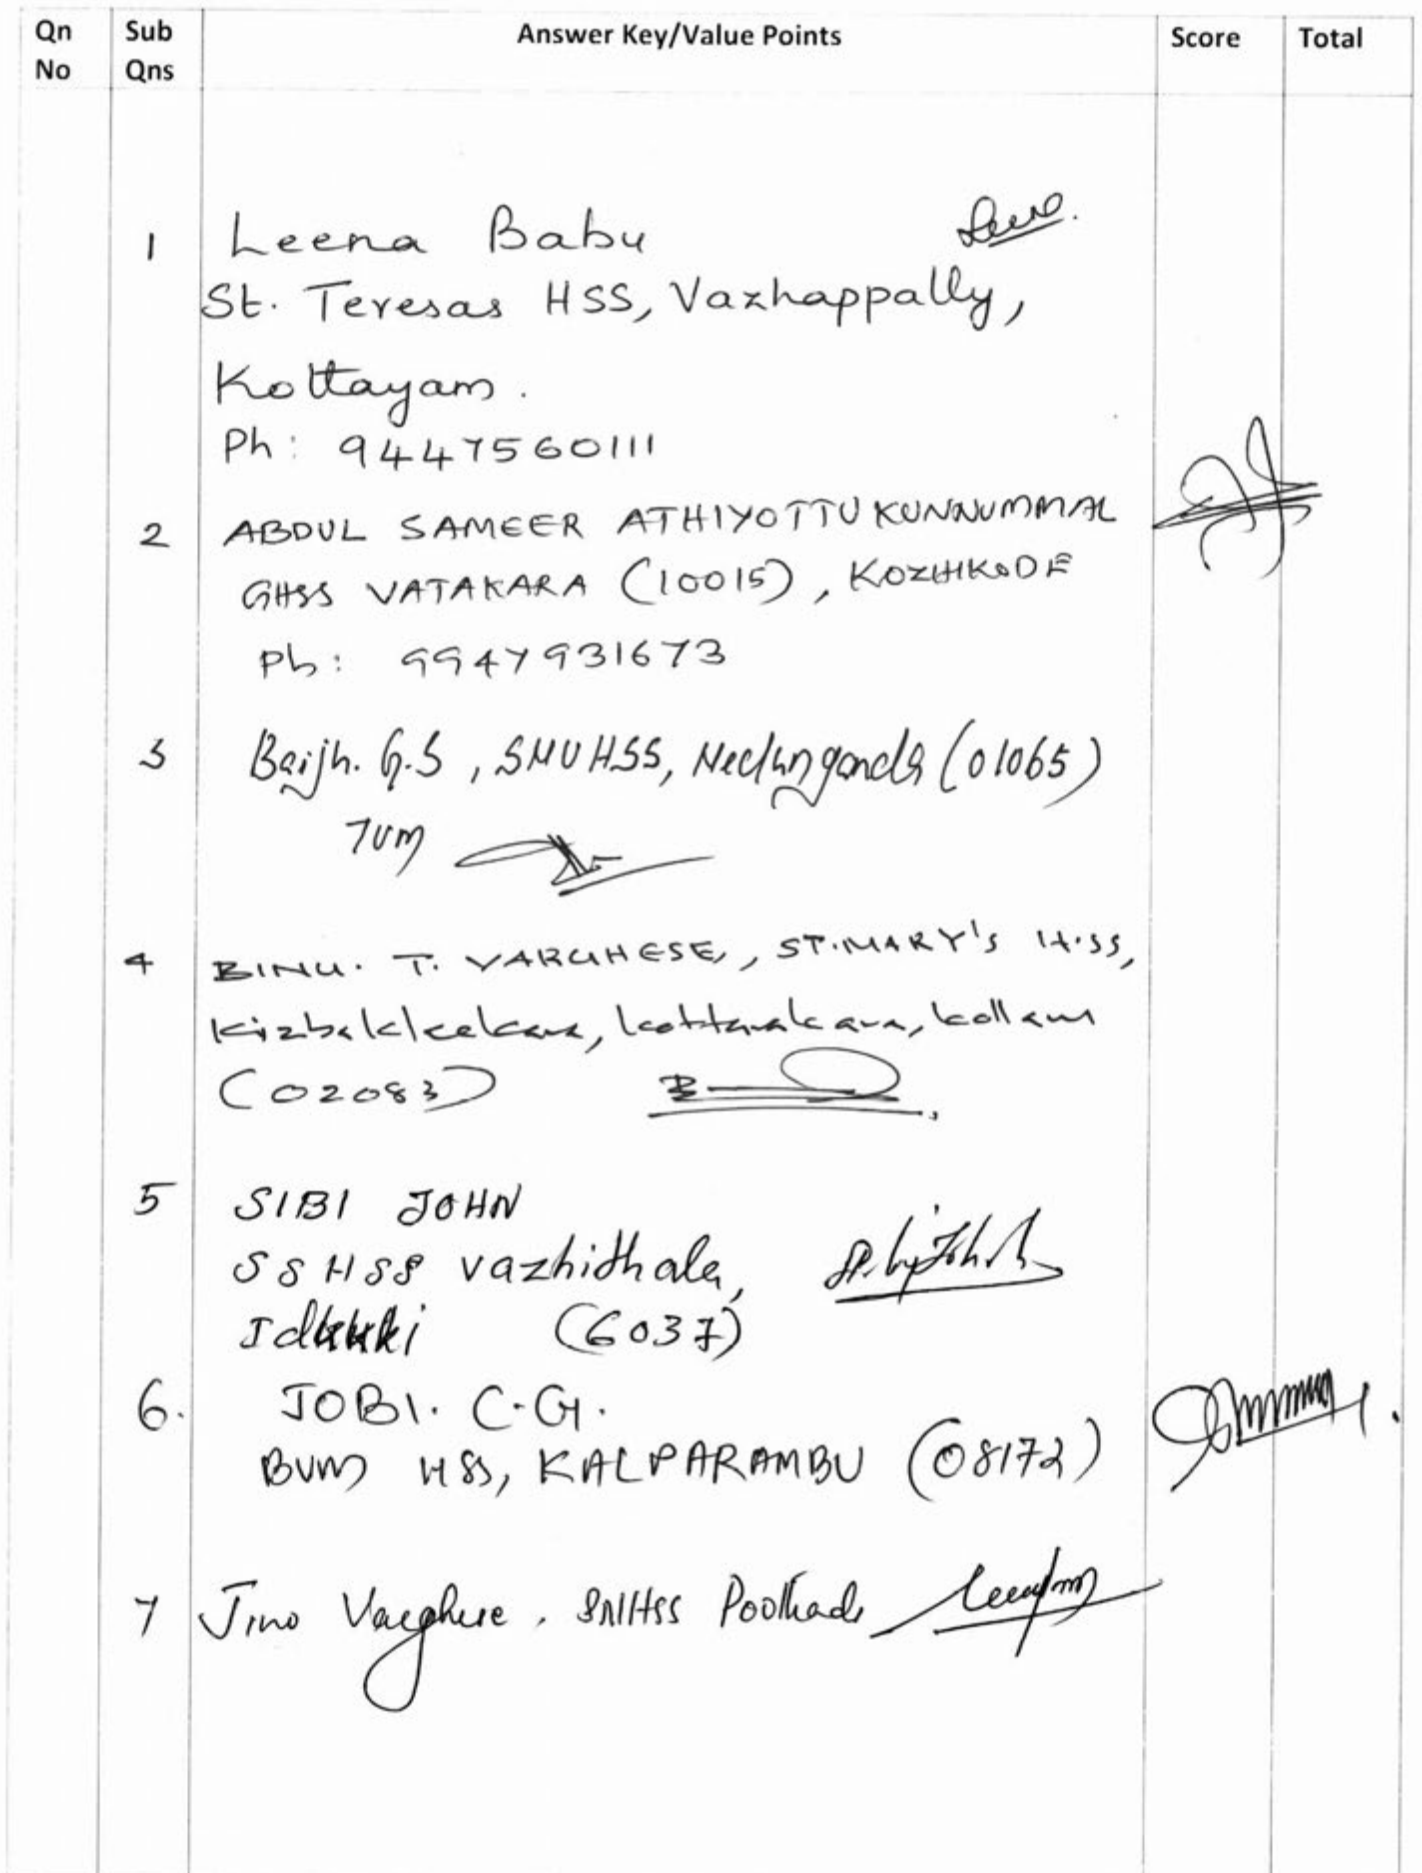 Qn No Sub Qns Answer Key/Value Points Score Total
1 Leena Babu
St. Teresas HSS, Vazhappally,
Kottayam.
Ph: 9447560111
2 ABDUL SAMEER ATHIYOTTU KUNNUMMAL
GHSS VATAKARA (10015), KOZHIKODE
Ph: 9947931673
3 G.S, HSS, (01065)
TVM
4 BINU. T. VARGHESE, ST.MARY's H.SS,
Kizhakkekara, kottarakara, kollam
(02083)
5 SIBI JOHN
SSHSS vazhithala,
Idukki (6037)
6. JOBI. C.G.
BVM HSS, KALPARAMBU (08172)
7 Jino Varghese, SNHSS